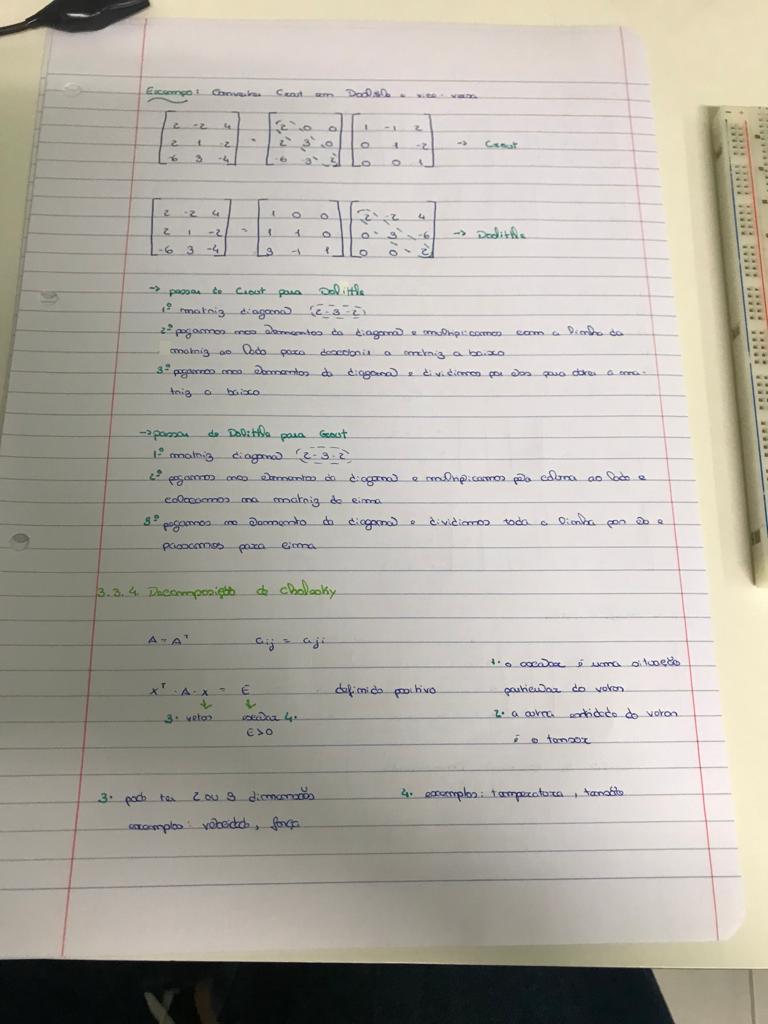 Exemplo: Converter Crout em Dolittle e vice-versa
[2 -2 4; 2 1 -2; -6 3 -4] = [2 0 0; 2 3 0; -6 -3 2] [1 -1 2; 0 1 -2; 0 0 1] → Crout
[2 -2 4; 2 1 -2; -6 3 -4] = [1 0 0; 1 1 0; 3 -1 1] [2 -2 4; 0 3 -6; 0 0 2] → Dolittle
→ passar de Crout para Dolittle
1º matriz diagonal (2-3-2)
2º pegamos nos elementos da diagonal e multiplicamos com a linha da
matriz ao lado para descobrir a matriz a baixo
3º pegamos nos elementos da diagonal e dividimos por eles para obter a ma-
triz a baixo
→ passar de Dolittle para Crout
1º matriz diagonal (2-3-2)
2º pegamos nos elementos da diagonal e multiplicamos pela coluna ao lado e
colocamos na matriz de cima
3º pegamos no elemento da diagonal e dividimos toda a linha por ele e
passamos para cima
3.3.4. Decomposição de Cholesky
A = Aᵀ aij = aji
1. o escalar é uma situação
Xᵀ · A · x = E definido positivo particular do vetor
3. vetor escalar 4. 2. a outra entidade do vetor
E>0 é o tensor
3. pode ter 2 ou 3 dimensões 4. exemplos: temperatura,
exemplos: velocidade, força